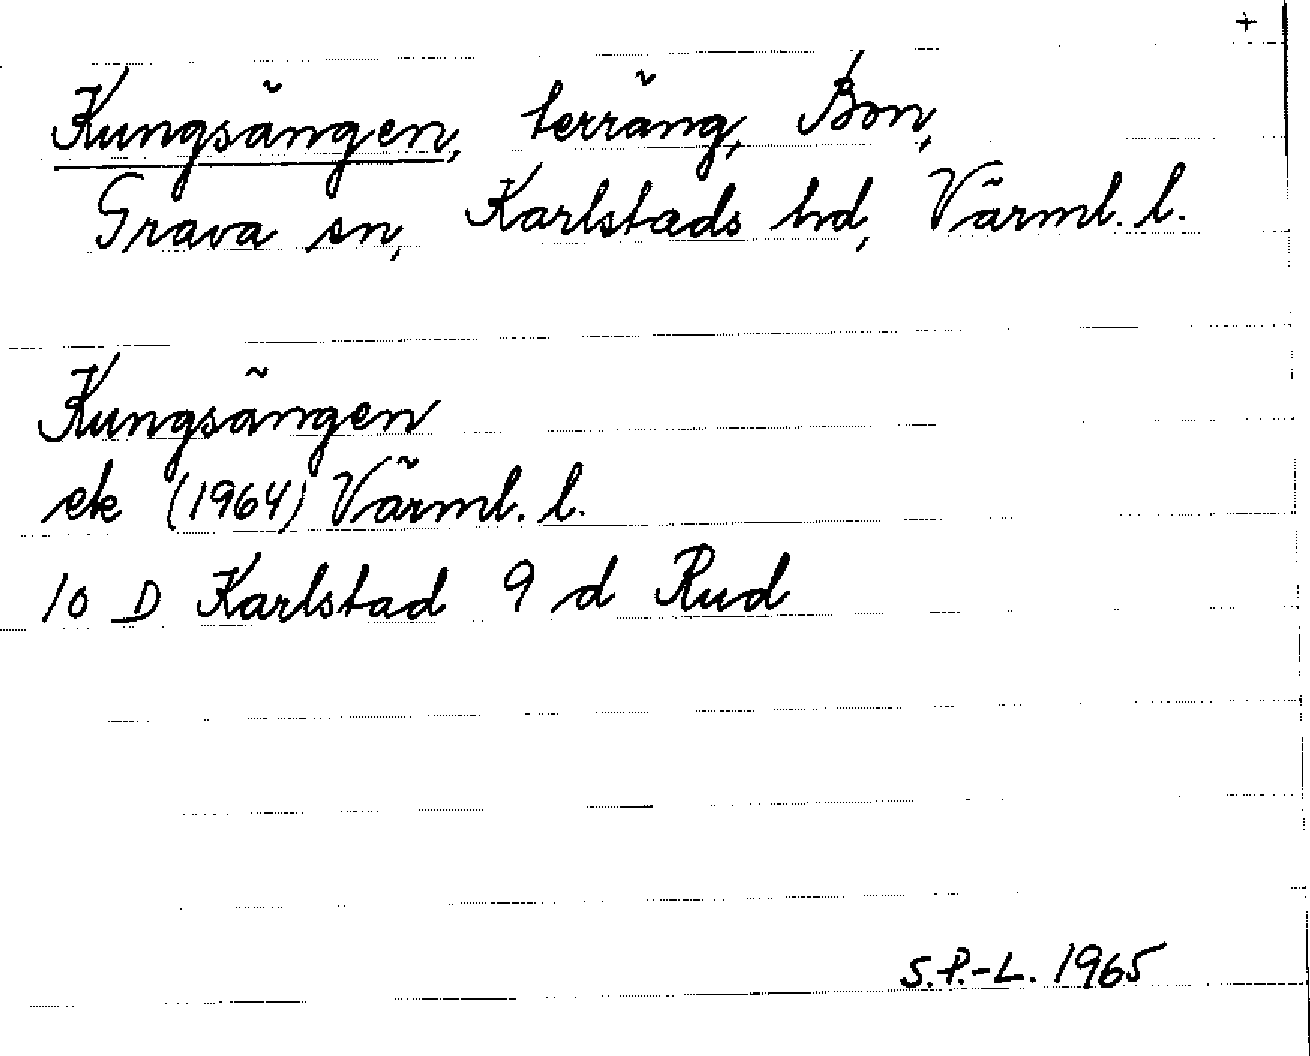 +
Kungsängen, terräng, Bon,
Grava sn, Karlstads hd, Värml. l.
Kungsängen
ek (1964) Värml. l.
10 D Karlstad 9 d Rud
S.P.-L. 1965